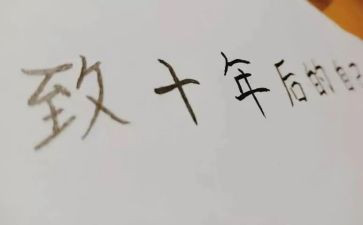 致十年后的自己